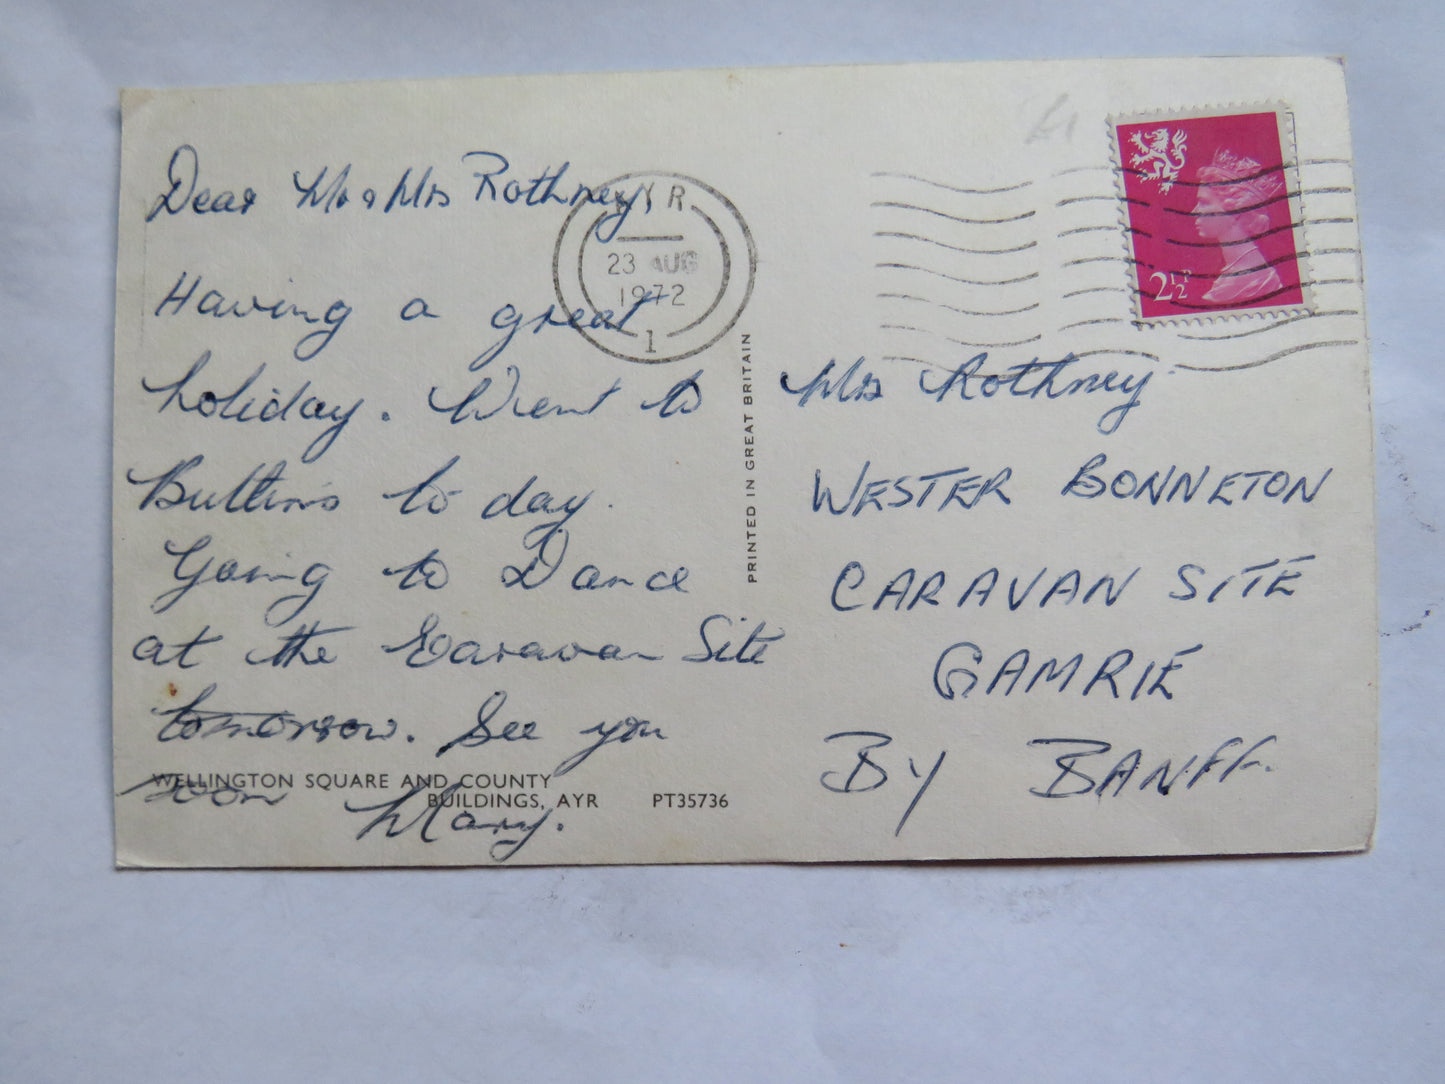 Dear Mr & Mrs Rothney,
Having a great
holiday. Went to
Butlins to day.
Going to Dance
at the Caravan Site
tomorrow. See you
soon Mary.
WELLINGTON SQUARE AND COUNTY
BUILDINGS, AYR PT35736
PRINTED IN GREAT BRITAIN
AYR
23 AUG
1972
1
2½P
Mrs Rothney
WESTER BONNETON
CARAVAN SITE
GAMRIE
By BANFF.